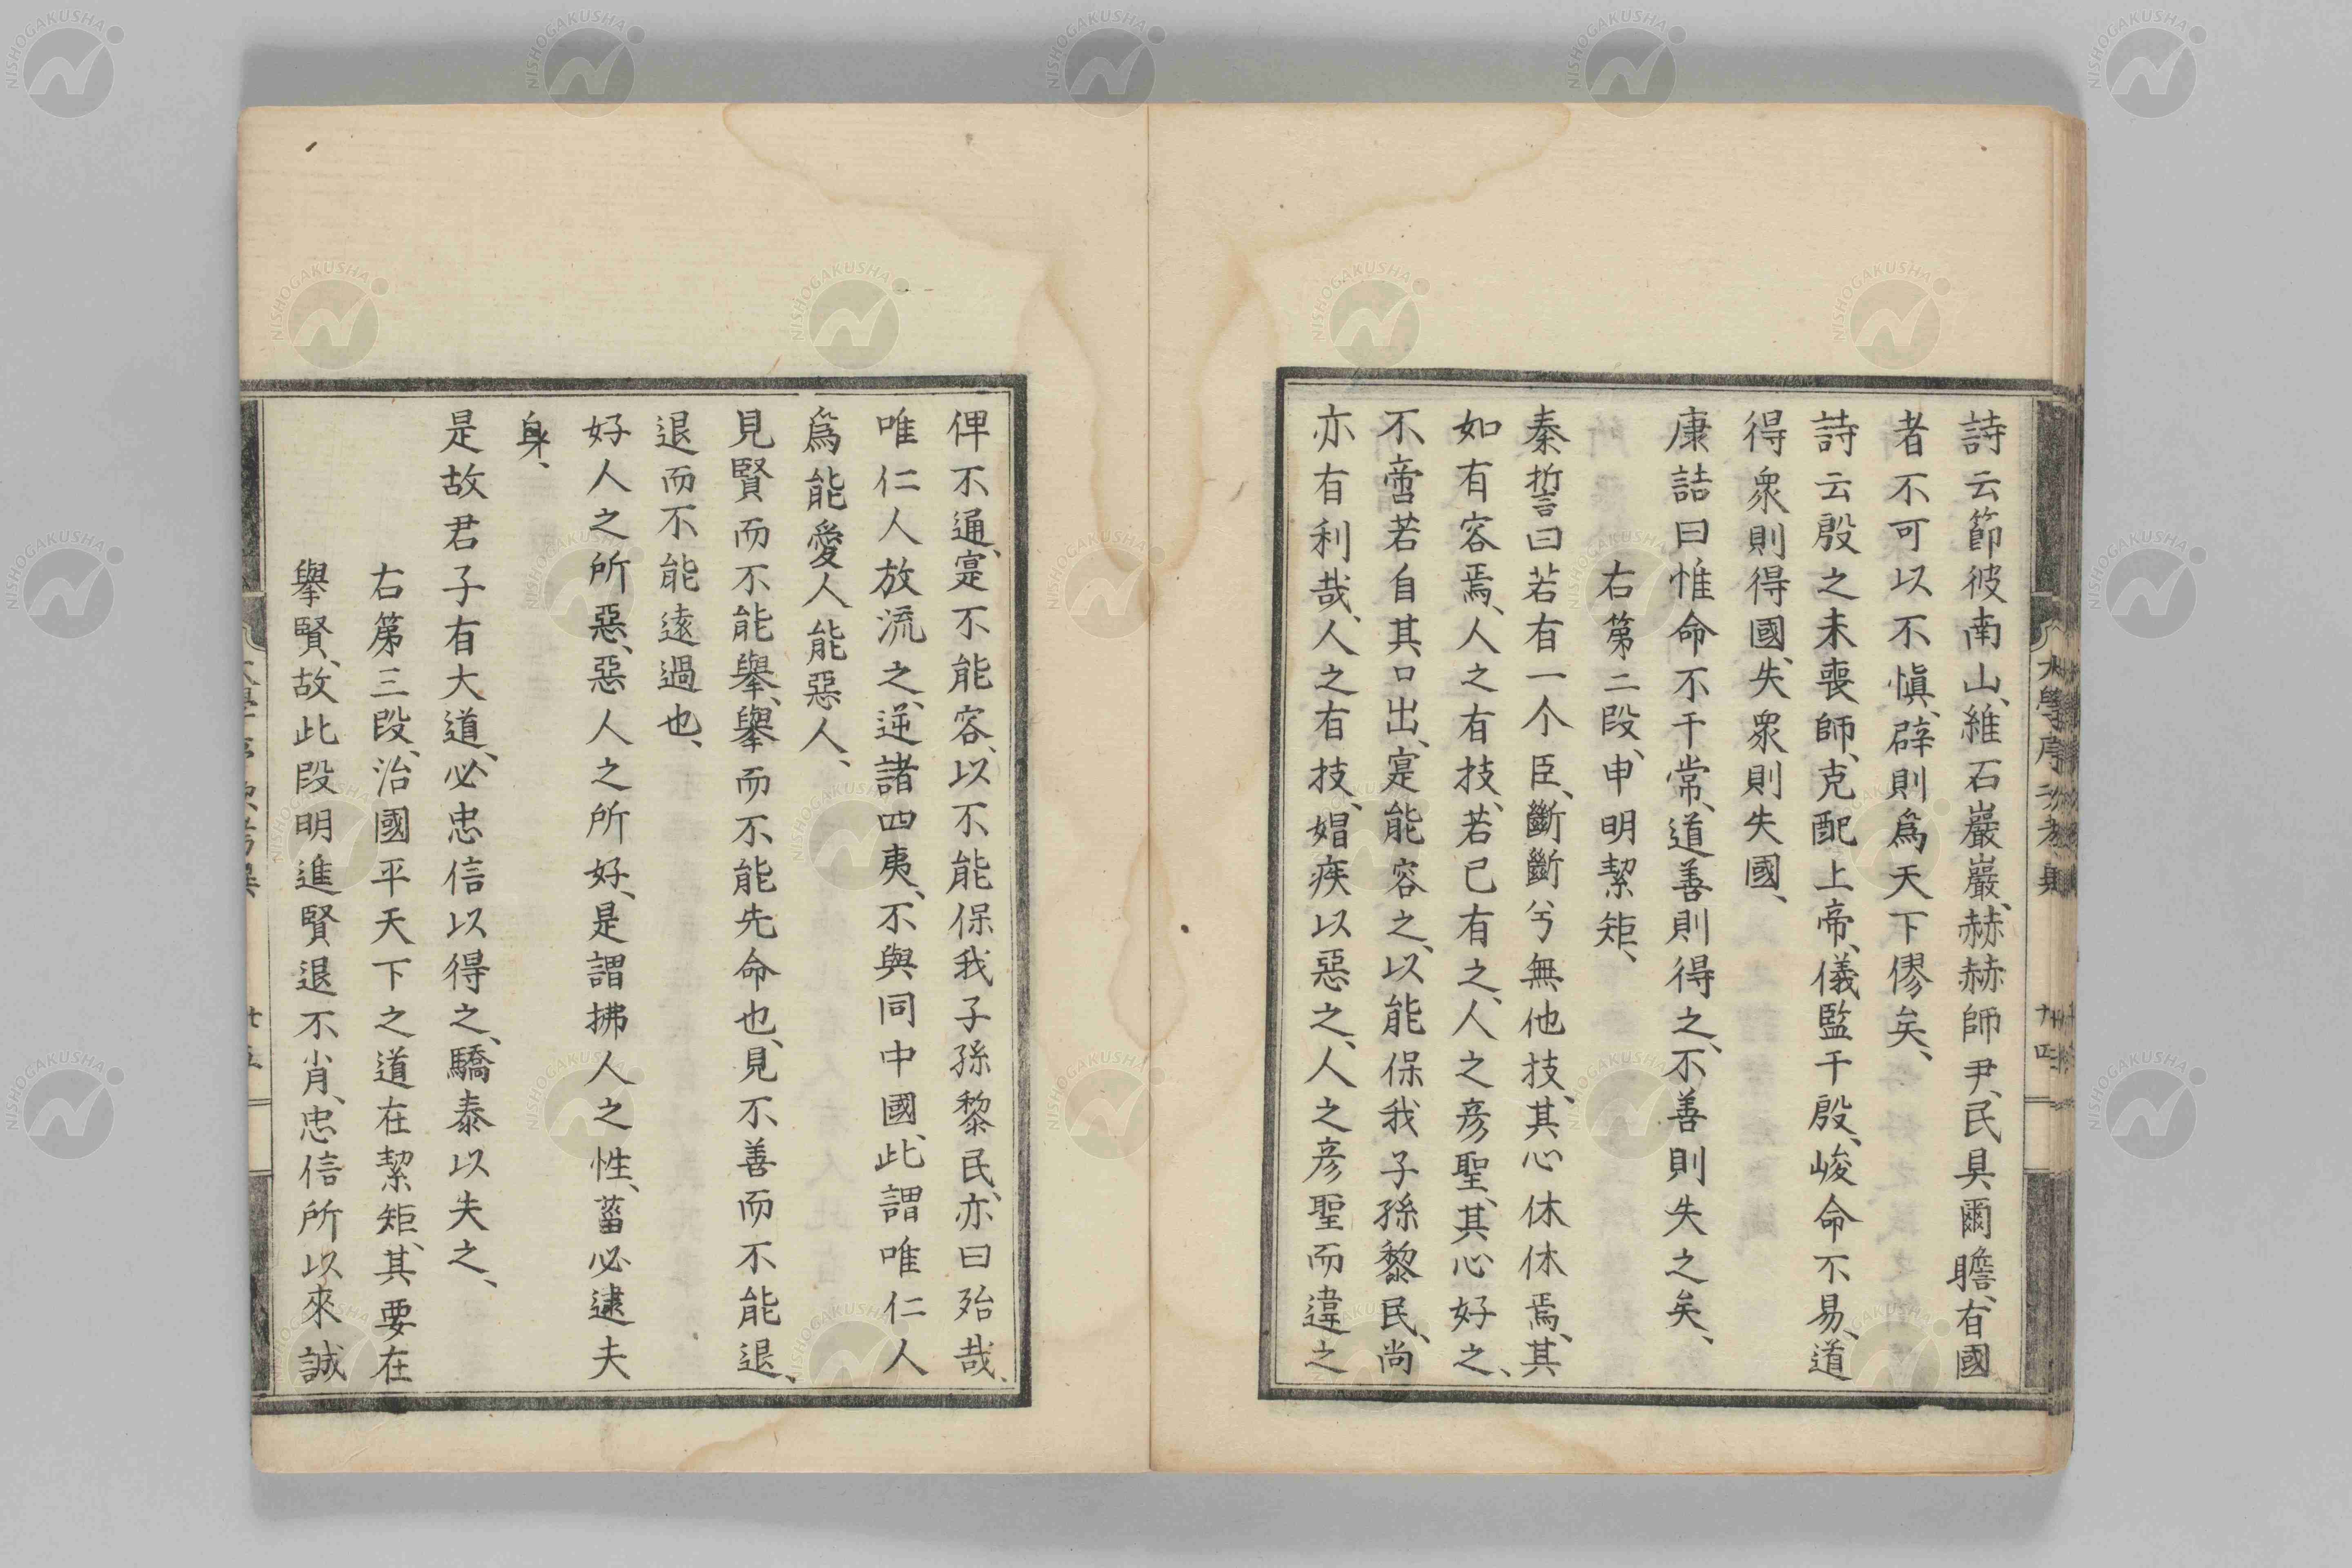 詩云節彼南山、維石巖巖、赫赫師尹、民具爾瞻、有國
者不可以不愼、辟則爲天下僇矣、
詩云殷之未喪師、克配上帝、儀監于殷、峻命不易、道
得衆則得國、失衆則失國、
康誥曰惟命不于常、道善則得之、不善則失之矣、
右第二段、申明絜矩、
秦誓曰若有一个臣、斷斷兮無他技、其心休休焉、其
如有容焉、人之有技、若己有之、人之彦聖、其心好之、
不啻若自其口出、寔能容之、以能保我子孫黎民、尚
亦有利哉、人之有技、媢疾以惡之、人之彦聖而違之
俾不通、寔不能容、以不能保我子孫黎民、亦曰殆哉、
唯仁人放流之、逆諸四夷、不與同中國、此謂唯仁人
爲能愛人能惡人、
見賢而不能擧、擧而不能先命也、見不善而不能退、
退而不能遠過也、
好人之所惡、惡人之所好、是謂拂人之性、菑必逮夫
身、
是故君子有大道、必忠信以得之、驕泰以失之、
右第三段、治國平天下之道在絜矩、其要在
擧賢、故此段明進賢退不肖、忠信所以來誠
NISHOGAKUSHA